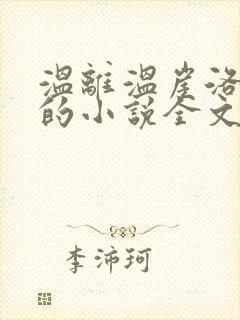 温離温崖洛
的小說全文
李沛珂